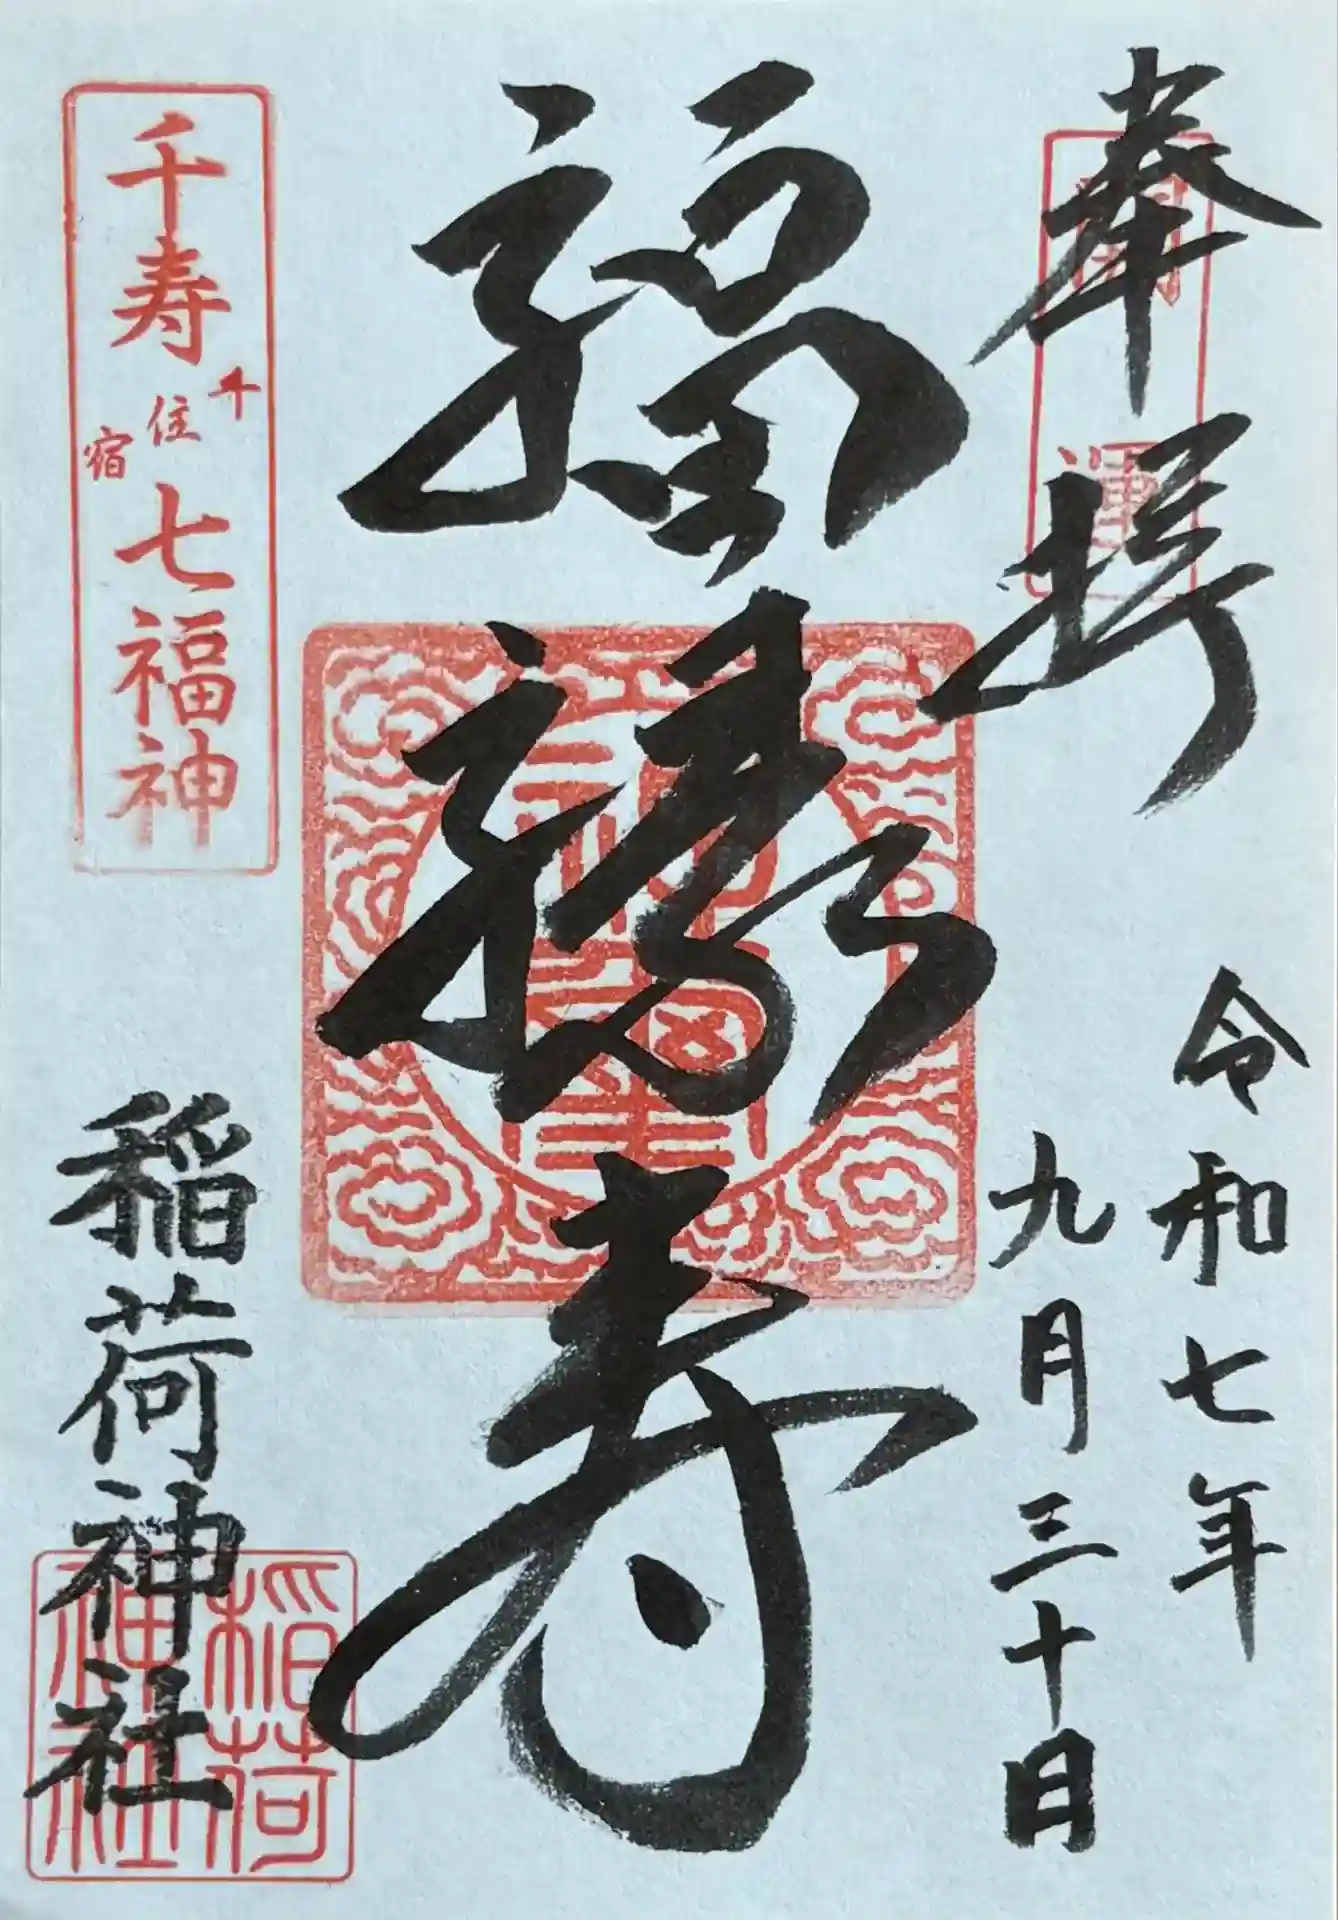 奉拝
開運
令和七年
九月三十日
福禄寿
千寿七福神
千住宿
稲荷神社
稲荷神社